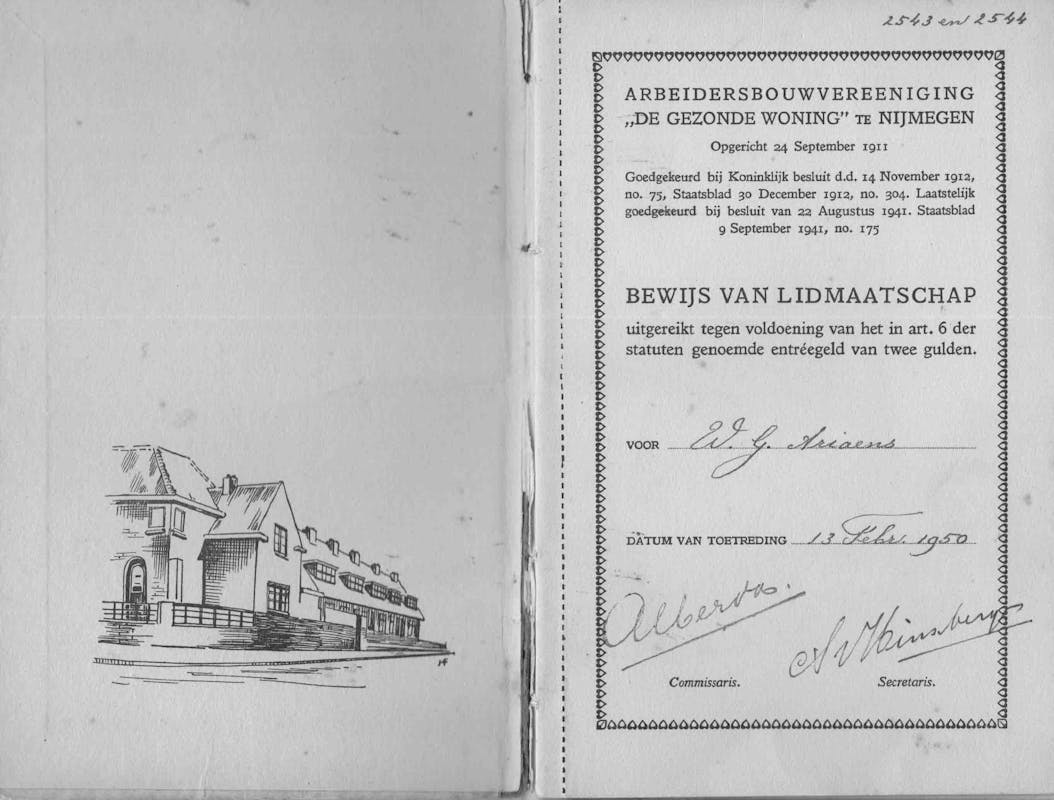 2543 en 2544
ARBEIDERSBOUWVEREENIGING
„DE GEZONDE WONING” TE NIJMEGEN
Opgericht 24 September 1911
Goedgekeurd bij Koninklijk besluit d.d. 14 November 1912,
no. 75, Staatsblad 30 December 1912, no. 304. Laatstelijk
goedgekeurd bij besluit van 22 Augustus 1941. Staatsblad
9 September 1941, no. 175
BEWIJS VAN LIDMAATSCHAP
uitgereikt tegen voldoening van het in art. 6 der
statuten genoemde entréegeld van twee gulden.
VOOR W. G. Ariaens
DATUM VAN TOETREDING 13 Febr. 1950
Commissaris. Secretaris.